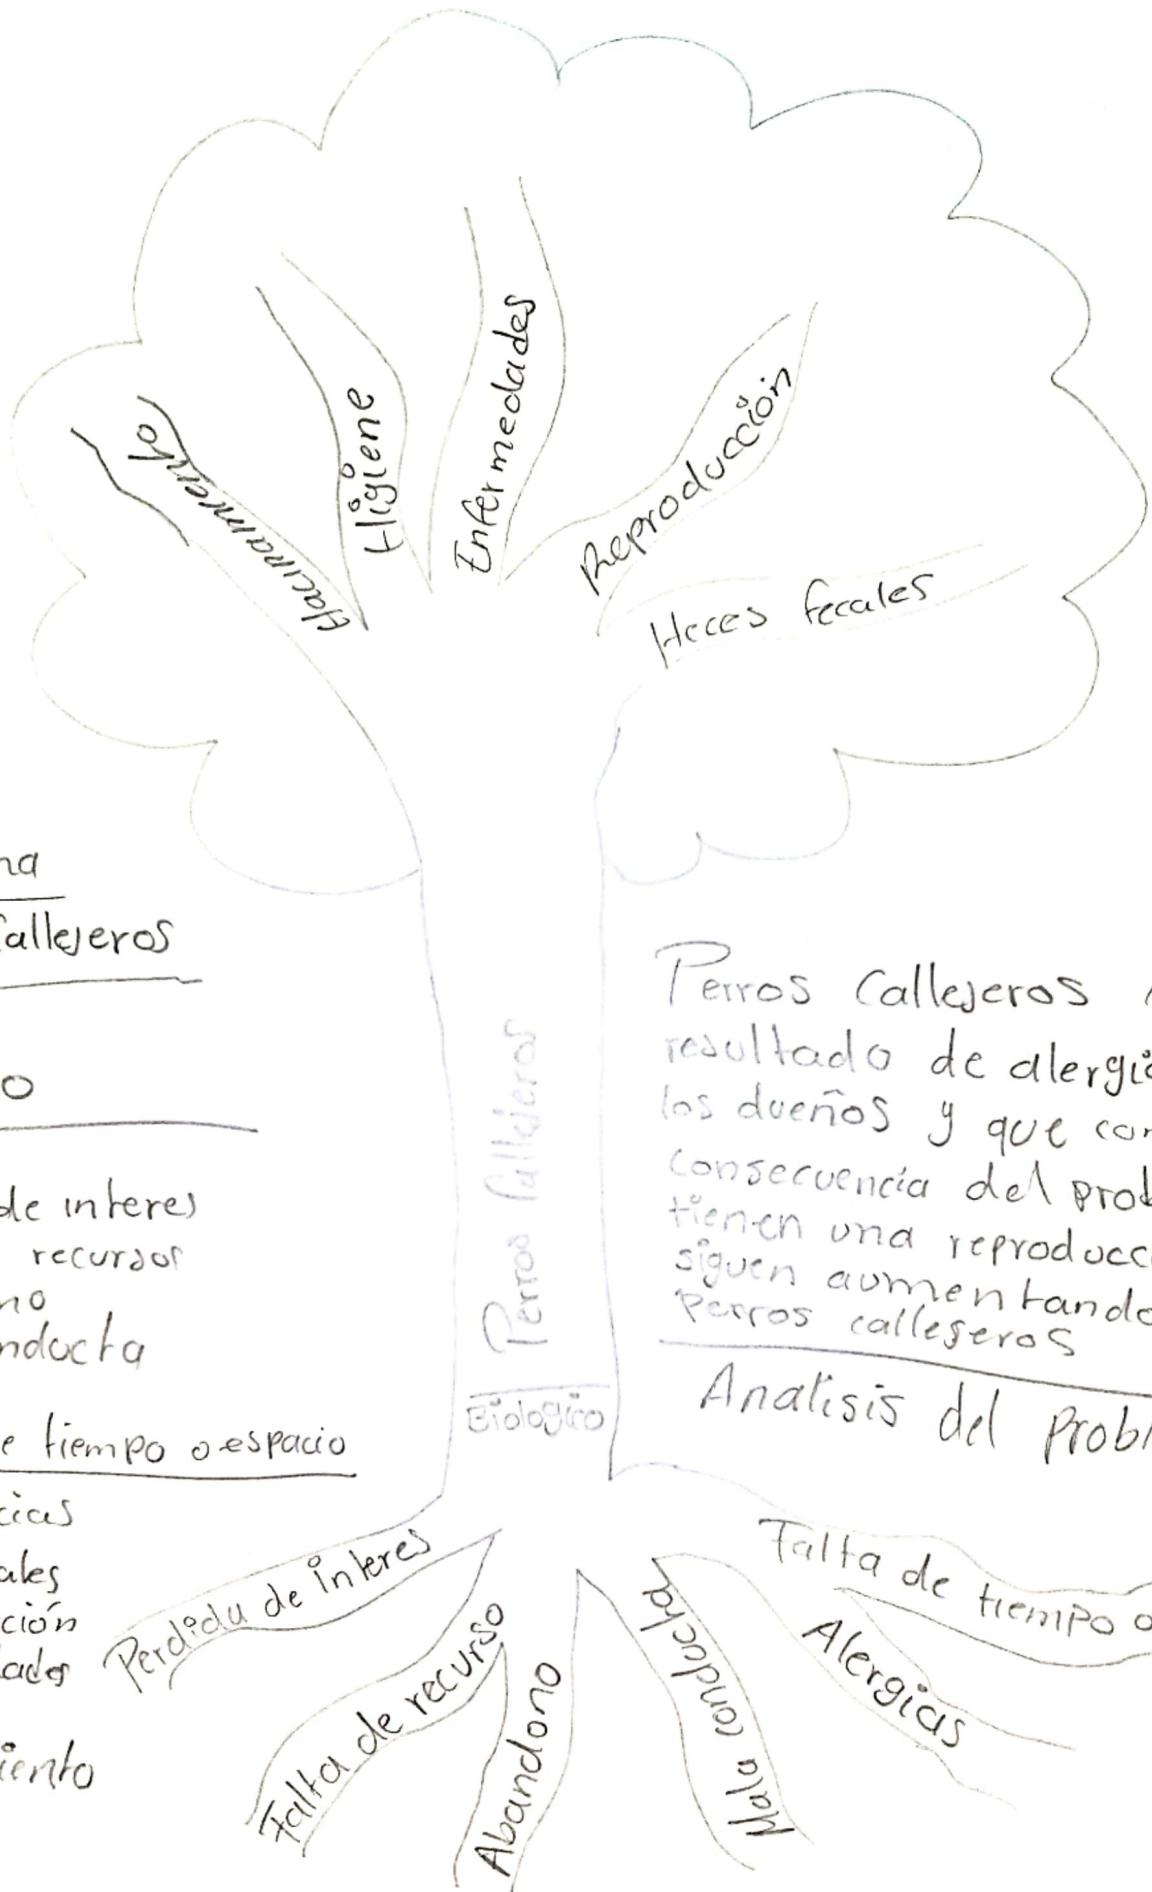 Hacinamiento
Higiene
Enfermedades
Reproducción
Heces fecales
na
Callejeros
o
de interes
recursos
no
nducta
e tiempo o espacio
cias
ales
ción
dades
iento
Perros Callejeros
Biologico
Perros Callejeros
resultado de alergi
los dueños y que co
Consecuencia del prob
tienen una reproducc
siguen aumentando
Perros callejeros
Analisis del Probl
Perdida de interes
Falta de recurso
Abandono
Mala conducta
Alergias
Falta de tiempo o